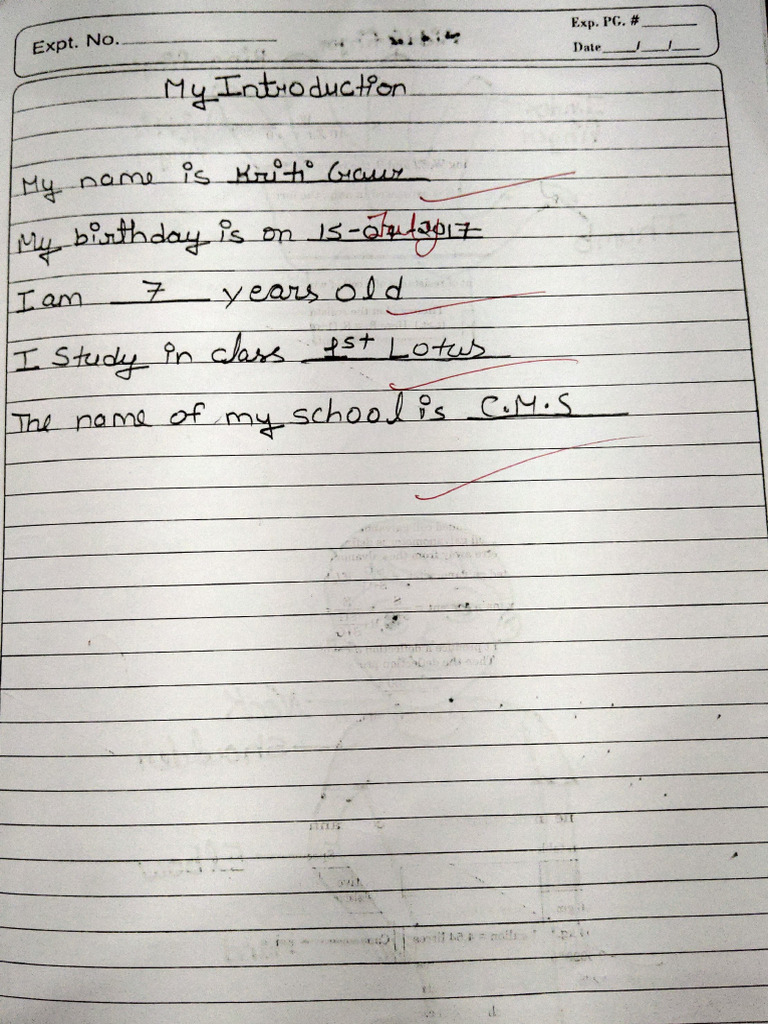 Expt. No.
Exp. PG. #
Date / /
My Introduction
My name is Kriti Gaur
My birthday is on 15-07-2017
July
I am 7 years old
I Study in class 1st Lotus
The name of my school is C.M.S